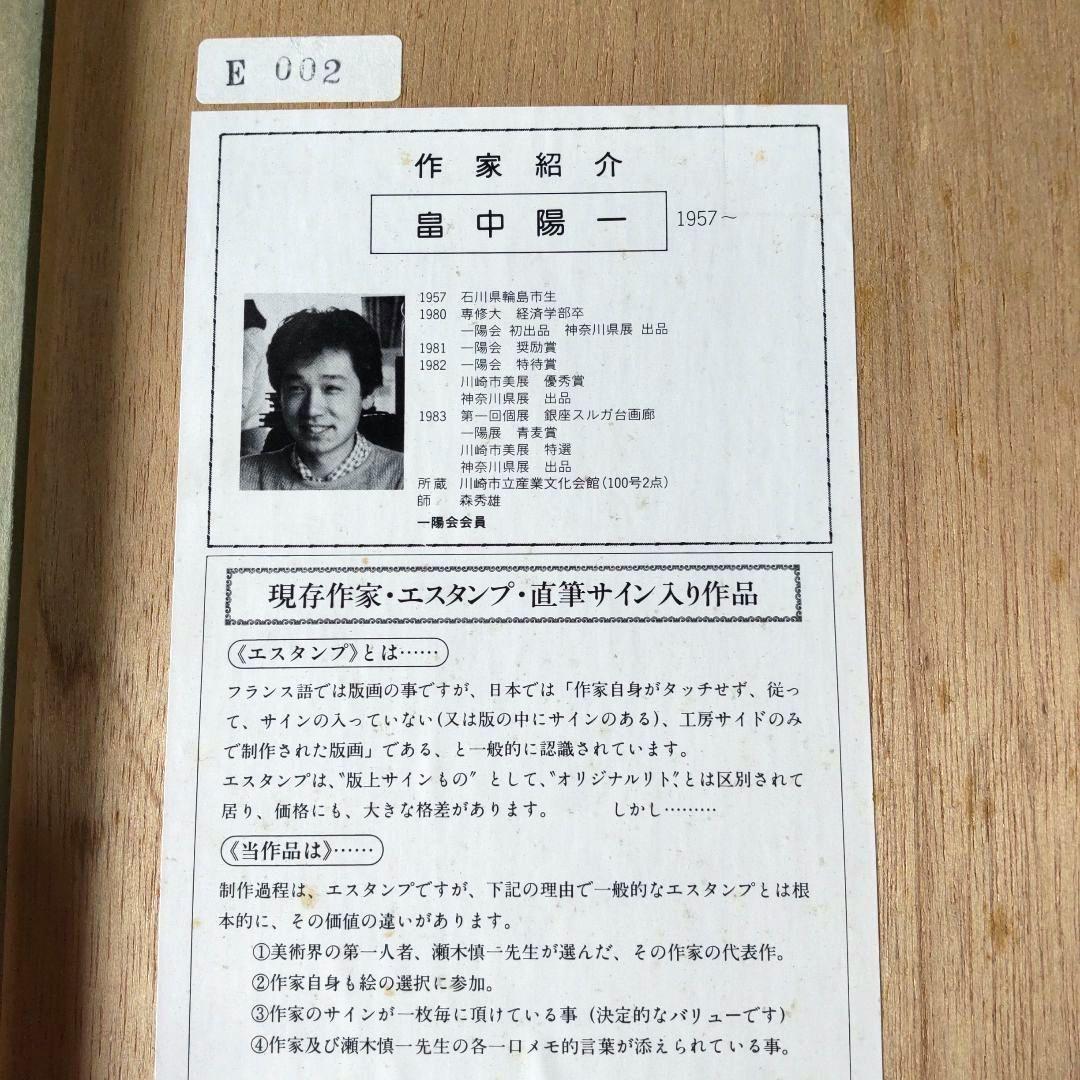 E 002
作家紹介
畠中陽一 1957～
1957 石川県輪島市生
1980 専修大 経済学部卒
一陽会 初出品 神奈川県展 出品
1981 一陽会 奨励賞
1982 一陽会 特待賞
川崎市美展 優秀賞
神奈川県展 出品
1983 第一回個展 銀座スルガ台画廊
一陽展 青麦賞
川崎市美展 特選
神奈川県展 出品
所蔵 川崎市立産業文化会館(100号2点)
師 森秀雄
一陽会会員
現存作家・エスタンプ・直筆サイン入り作品
《エスタンプ》とは……
フランス語では版画の事ですが、日本では「作家自身がタッチせず、従っ
て、サインの入っていない(又は版の中にサインのある)、工房サイドのみ
で制作された版画」である、と一般的に認識されています。
エスタンプは、〝版上サインもの〞として、〝オリジナルリト〞とは区別されて
居り、価格にも、大きな格差があります。 しかし………
《当作品は》……
制作過程は、エスタンプですが、下記の理由で一般的なエスタンプとは根
本的に、その価値の違いがあります。
①美術界の第一人者、瀬木慎一先生が選んだ、その作家の代表作。
②作家自身も絵の選択に参加。
③作家のサインが一枚毎に頂けている事（決定的なバリューです）
④作家及び瀬木慎一先生の各一口メモ的言葉が添えられている事。